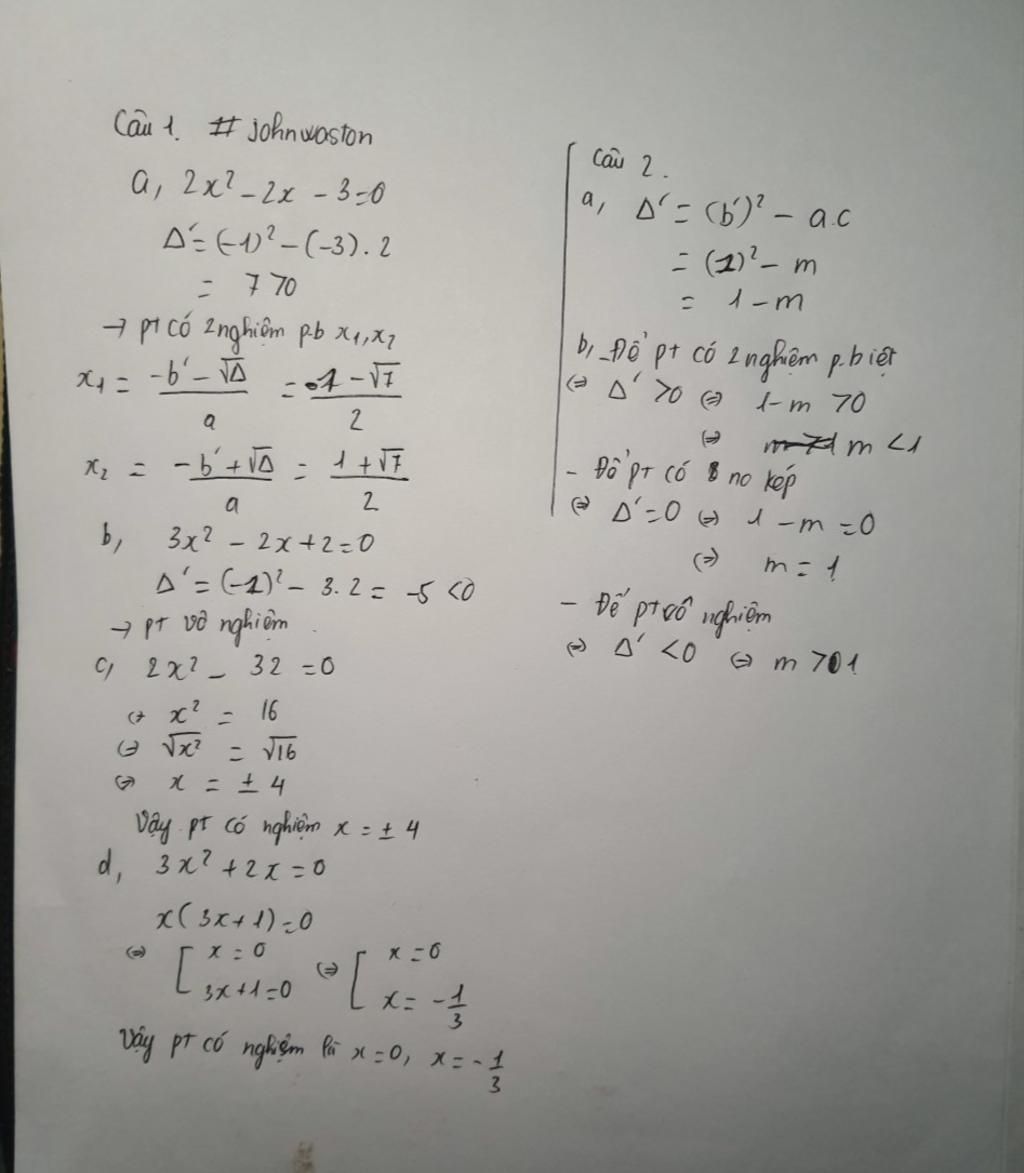 Câu 1. # johnwaston
a, 2x² - 2x - 3 = 0
Δ' = (-1)² - (-3) . 2
= 7 > 0
→ pt có 2 nghiệm p.b x₁, x₂
x₁ = (-b' - √Δ)/a = (1 - √7)/2
x₂ = (-b' + √Δ)/a = (1 + √7)/2
b, 3x² - 2x + 2 = 0
Δ' = (-1)² - 3.2 = -5 < 0
→ pt vô nghiệm
c, 2x² - 32 = 0
⇔ x² = 16
⇔ √x² = √16
⇔ x = ± 4
Vậy pt có nghiệm x = ± 4
d, 3x² + 2x = 0
x(3x + 1) = 0
⇔ [ x = 0 ⇔ [ x = 0
3x + 1 = 0 x = -1/3
Vậy pt có nghiệm là x = 0, x = -1/3
Câu 2.
a, Δ' = (b')² - a.c
= (1)² - m
= 1 - m
b, - Để pt có 2 nghiệm p.biệt
⇔ Δ' > 0 ⇔ 1 - m > 0
⇔ m < 1
- Để pt có no kép
⇔ Δ' = 0 ⇔ 1 - m = 0
⇔ m = 1
- Để pt vô nghiệm
⇔ Δ' < 0 ⇔ m > 1